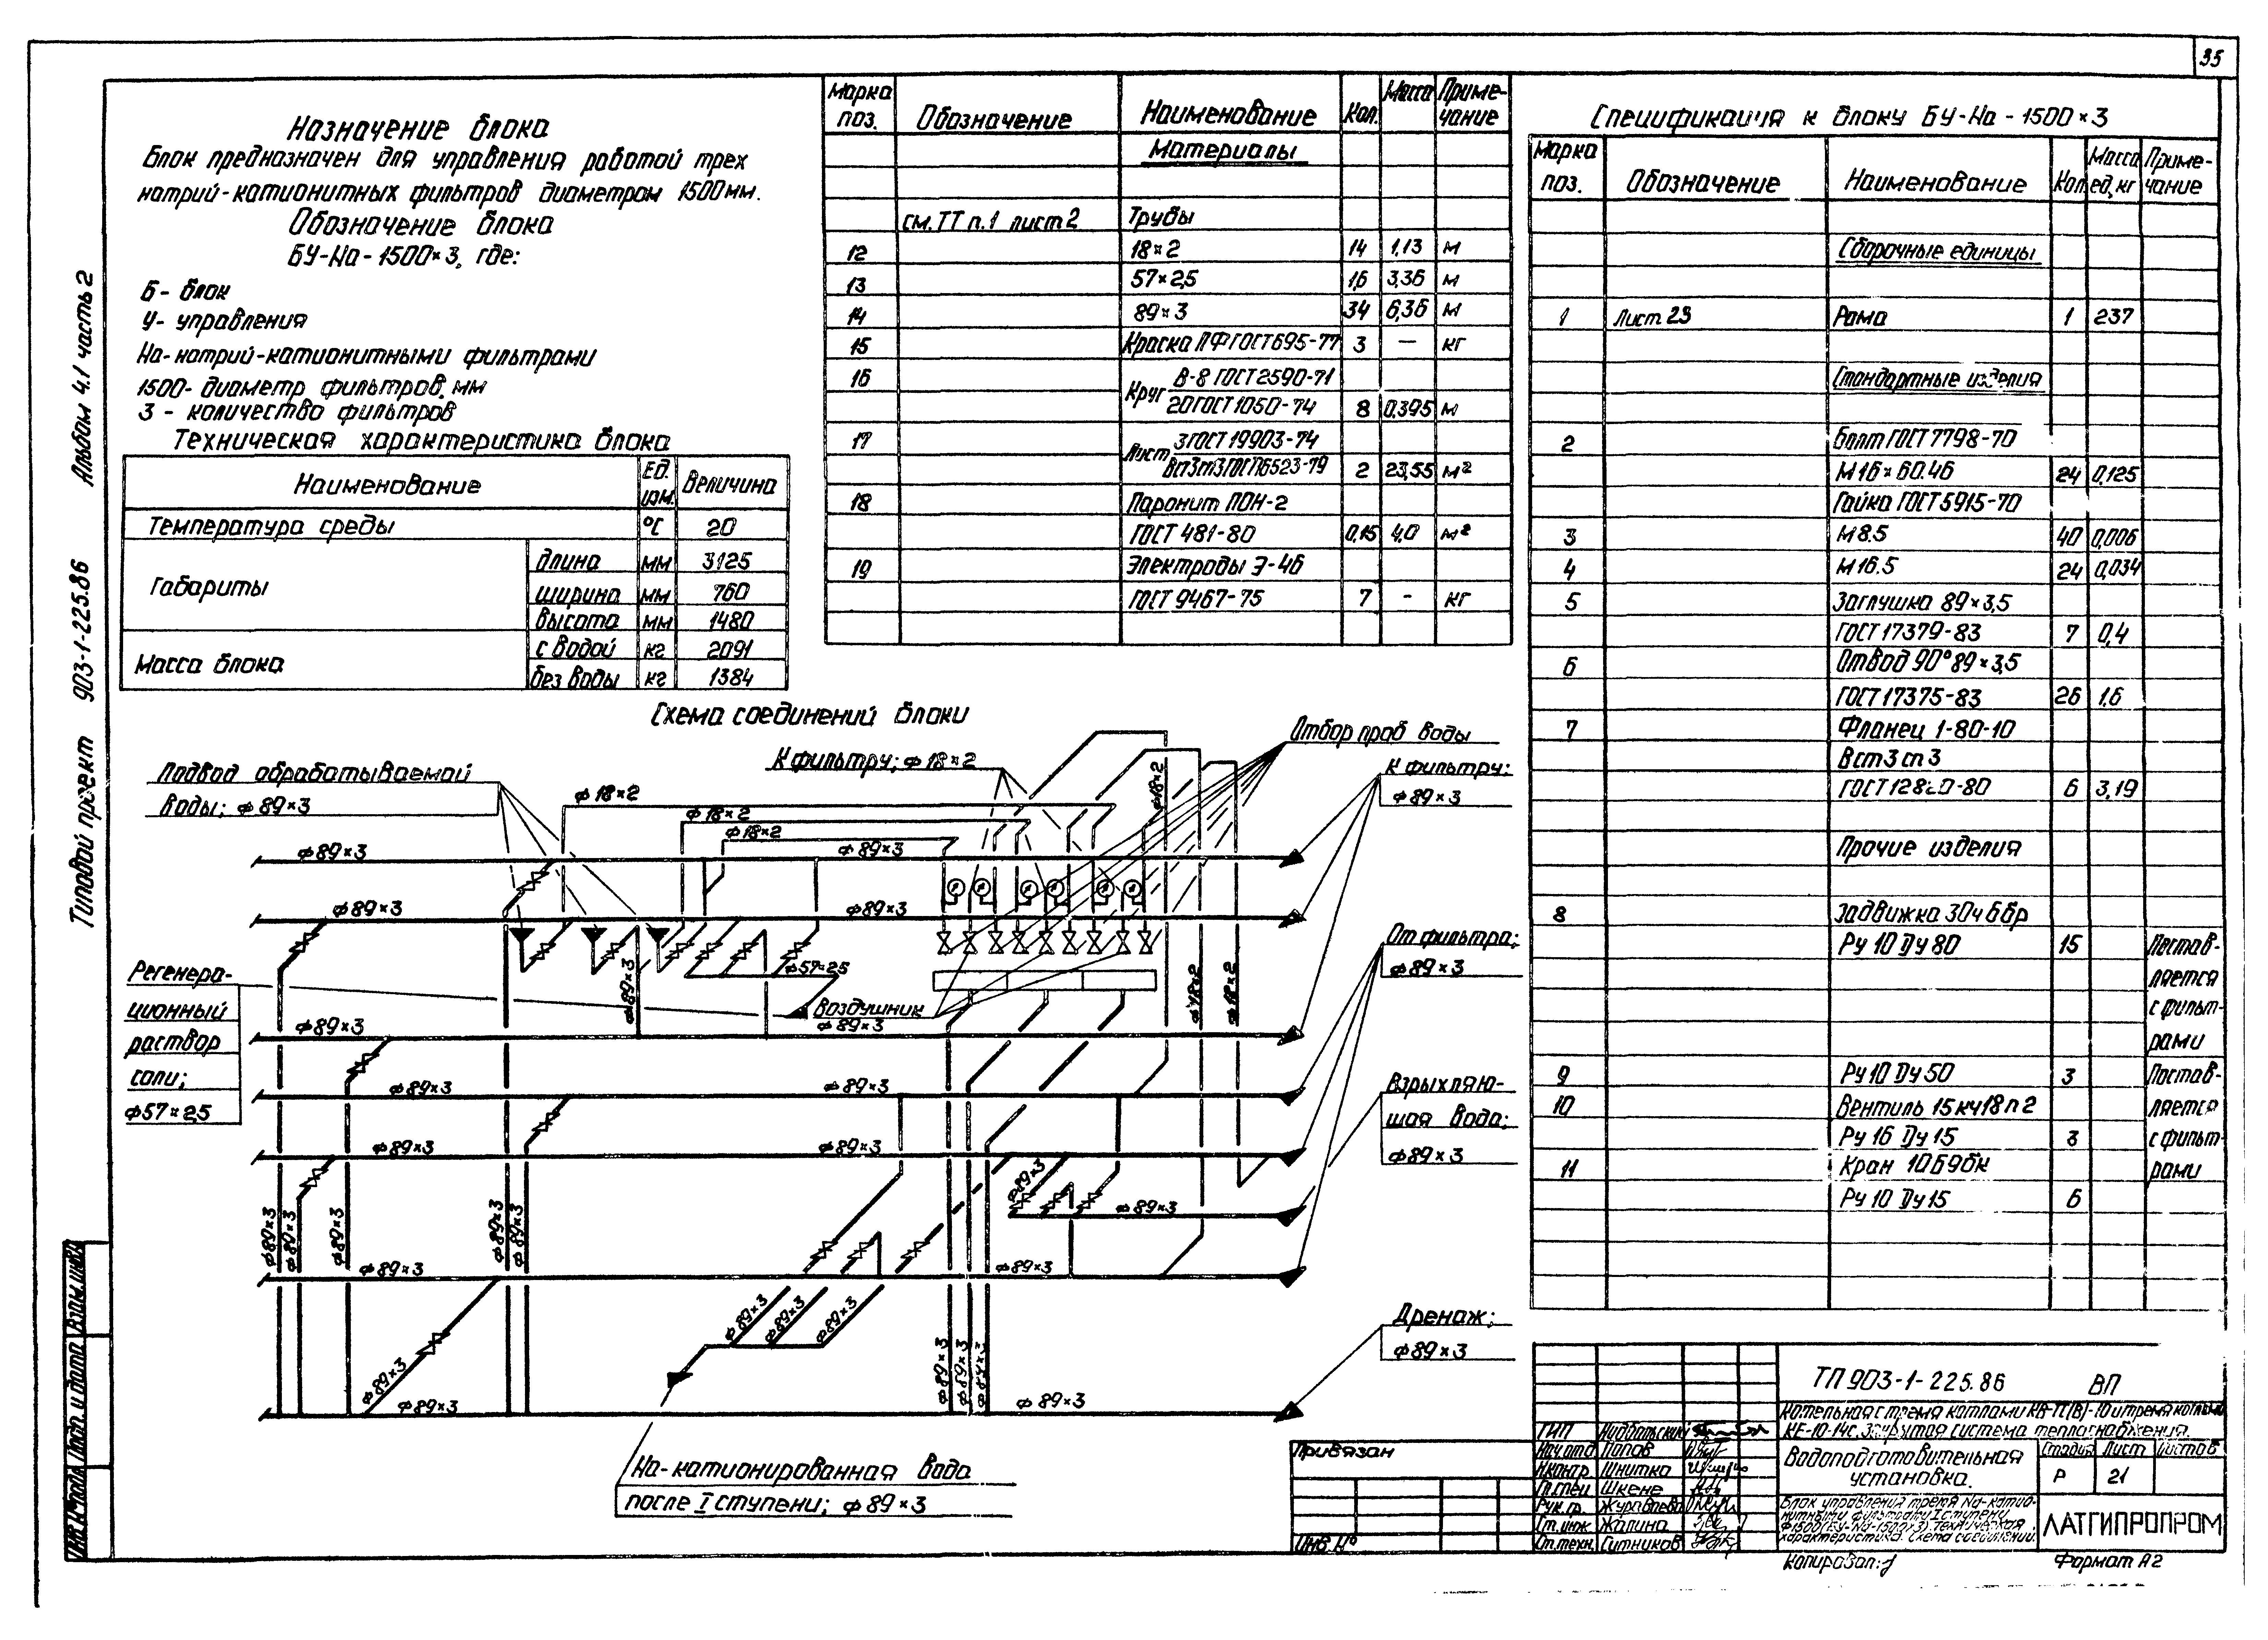 35
Альбом 4.1 часть 2
Типовой проект 903-1-225.86
Назначение блока
Блок предназначен для управления работой трех
натрий-катионитных фильтров диаметром 1500мм.
Обозначение блока
БУ-Na-1500×3, где:
Б- блок
У- управления
Na-натрий-катионитными фильтрами
1500- диаметр фильтров, мм
3 - количество фильтров
Техническая характеристика блока
Наименование Ед. изм. Величина
Температура среды °С 20
Габариты длина мм 3125
ширина мм 760
высота мм 1480
Масса блока с водой кг 2091
без воды кг 1384
Марка поз. Обозначение Наименование Кол. Масса Приме-
чание
Материалы
см. ТТ п.1 лист 2 Трубы
12 18×2 14 1,13 м
13 57×2,5 1,6 3,36 м
14 89×3 34 6,36 м
15 Краска ПФ ГОСТ 695-77 3 — кг
16 Круг В-8 ГОСТ 2590-71
20 ГОСТ 1050-74 8 0,395 м
17 Лист 3 ГОСТ 19903-74
ВСт3 ГОСТ 16523-79 2 23,55 м²
18 Паронит ПОН-2
ГОСТ 481-80 0,15 4,0 м²
19 Электроды Э-46
ГОСТ 9467-75 7 - кг
Спецификация к блоку БУ-Na-1500×3
Марка поз. Обозначение Наименование Кол. Масса ед., кг Приме-
чание
Сборочные единицы
1 Лист 23 Рама 1 237
Стандартные изделия
2 Болт ГОСТ 7798-70
М16×60.46 24 0,125
Гайка ГОСТ 5915-70
3 М8.5 40 0,006
4 М16.5 24 0,034
5 Заглушка 89×3,5
ГОСТ 17379-83 7 0,4
6 Отвод 90° 89×3,5
ГОСТ 17375-83 26 1,6
7 Фланец 1-80-10
Вст3сп3
ГОСТ 12820-80 6 3,19
Прочие изделия
8 Задвижка 30ч6бр
Ру 10 Ду 80 15 Постав-
ляется
с фильт-
рами
9 Ру 10 Ду 50 3 Постав-
10 Вентиль 15кч18п2 ляется
Ру 16 Ду 15 3 с фильт-
11 Кран 10Б9бк рами
Ру 10 Ду 15 6
Схема соединений блоки
Подвод обрабатываемой
воды; ф 89×3
К фильтру; ф 18×2
Отбор проб воды
К фильтру;
ф 89×3
ф 18×2
ф 18×2
ф 18×2
ф18×2
ф 89×3
ф 89×3
ф 89×3
ф 89×3
ф 89×3
ф57×2,5
ф18×2
ф18×2
Регенера-
ционный
раствор
соли;
ф57×2,5
Воздушник
ф 89×3
ф 89×3
От фильтра;
ф 89×3
ф 89×3
ф 89×3
Взрыхляю-
щая вода;
ф 89×3
ф 89×3
ф 89×3
ф89×3
ф 89×3
ф89×3
ф89×3
ф89×3
ф89×3
ф89×3
ф 89×3
ф 89×3
ф89×3
ф89×3
ф89×3
ф89×3
ф89×3
ф89×3
ф89×3
Дренаж;
ф 89×3
ф 89×3
ф 89×3
Na-катионированная вода
после I ступени; ф 89×3
Привязан
Инв. №
ТП 903-1-225.86 ВП
Котельная с тремя котлами КВ-ТС(В)-10 и тремя котлами
КЕ-10-14с. Закрытая система теплоснабжения.
ГИП
Нач.отд Попов
Н.контр Шнитка
Гл.спец Шкене
Рук.гр. Журавлева
Ст.инж Жалина
Ст.техн. Ситников
Водоподготовительная
установка.
Стадия Лист Листов
Р 21
Блок управления тремя Na-катио-
нитными фильтрами I ступени
Ф1500 (БУ-Na-1500×3). Техническая
характеристика. Схема соединений.
ЛАТГИПРОПРОМ
Копировал:
Формат А2
Взам. инв.
Подп. и дата
Инв. № подл.